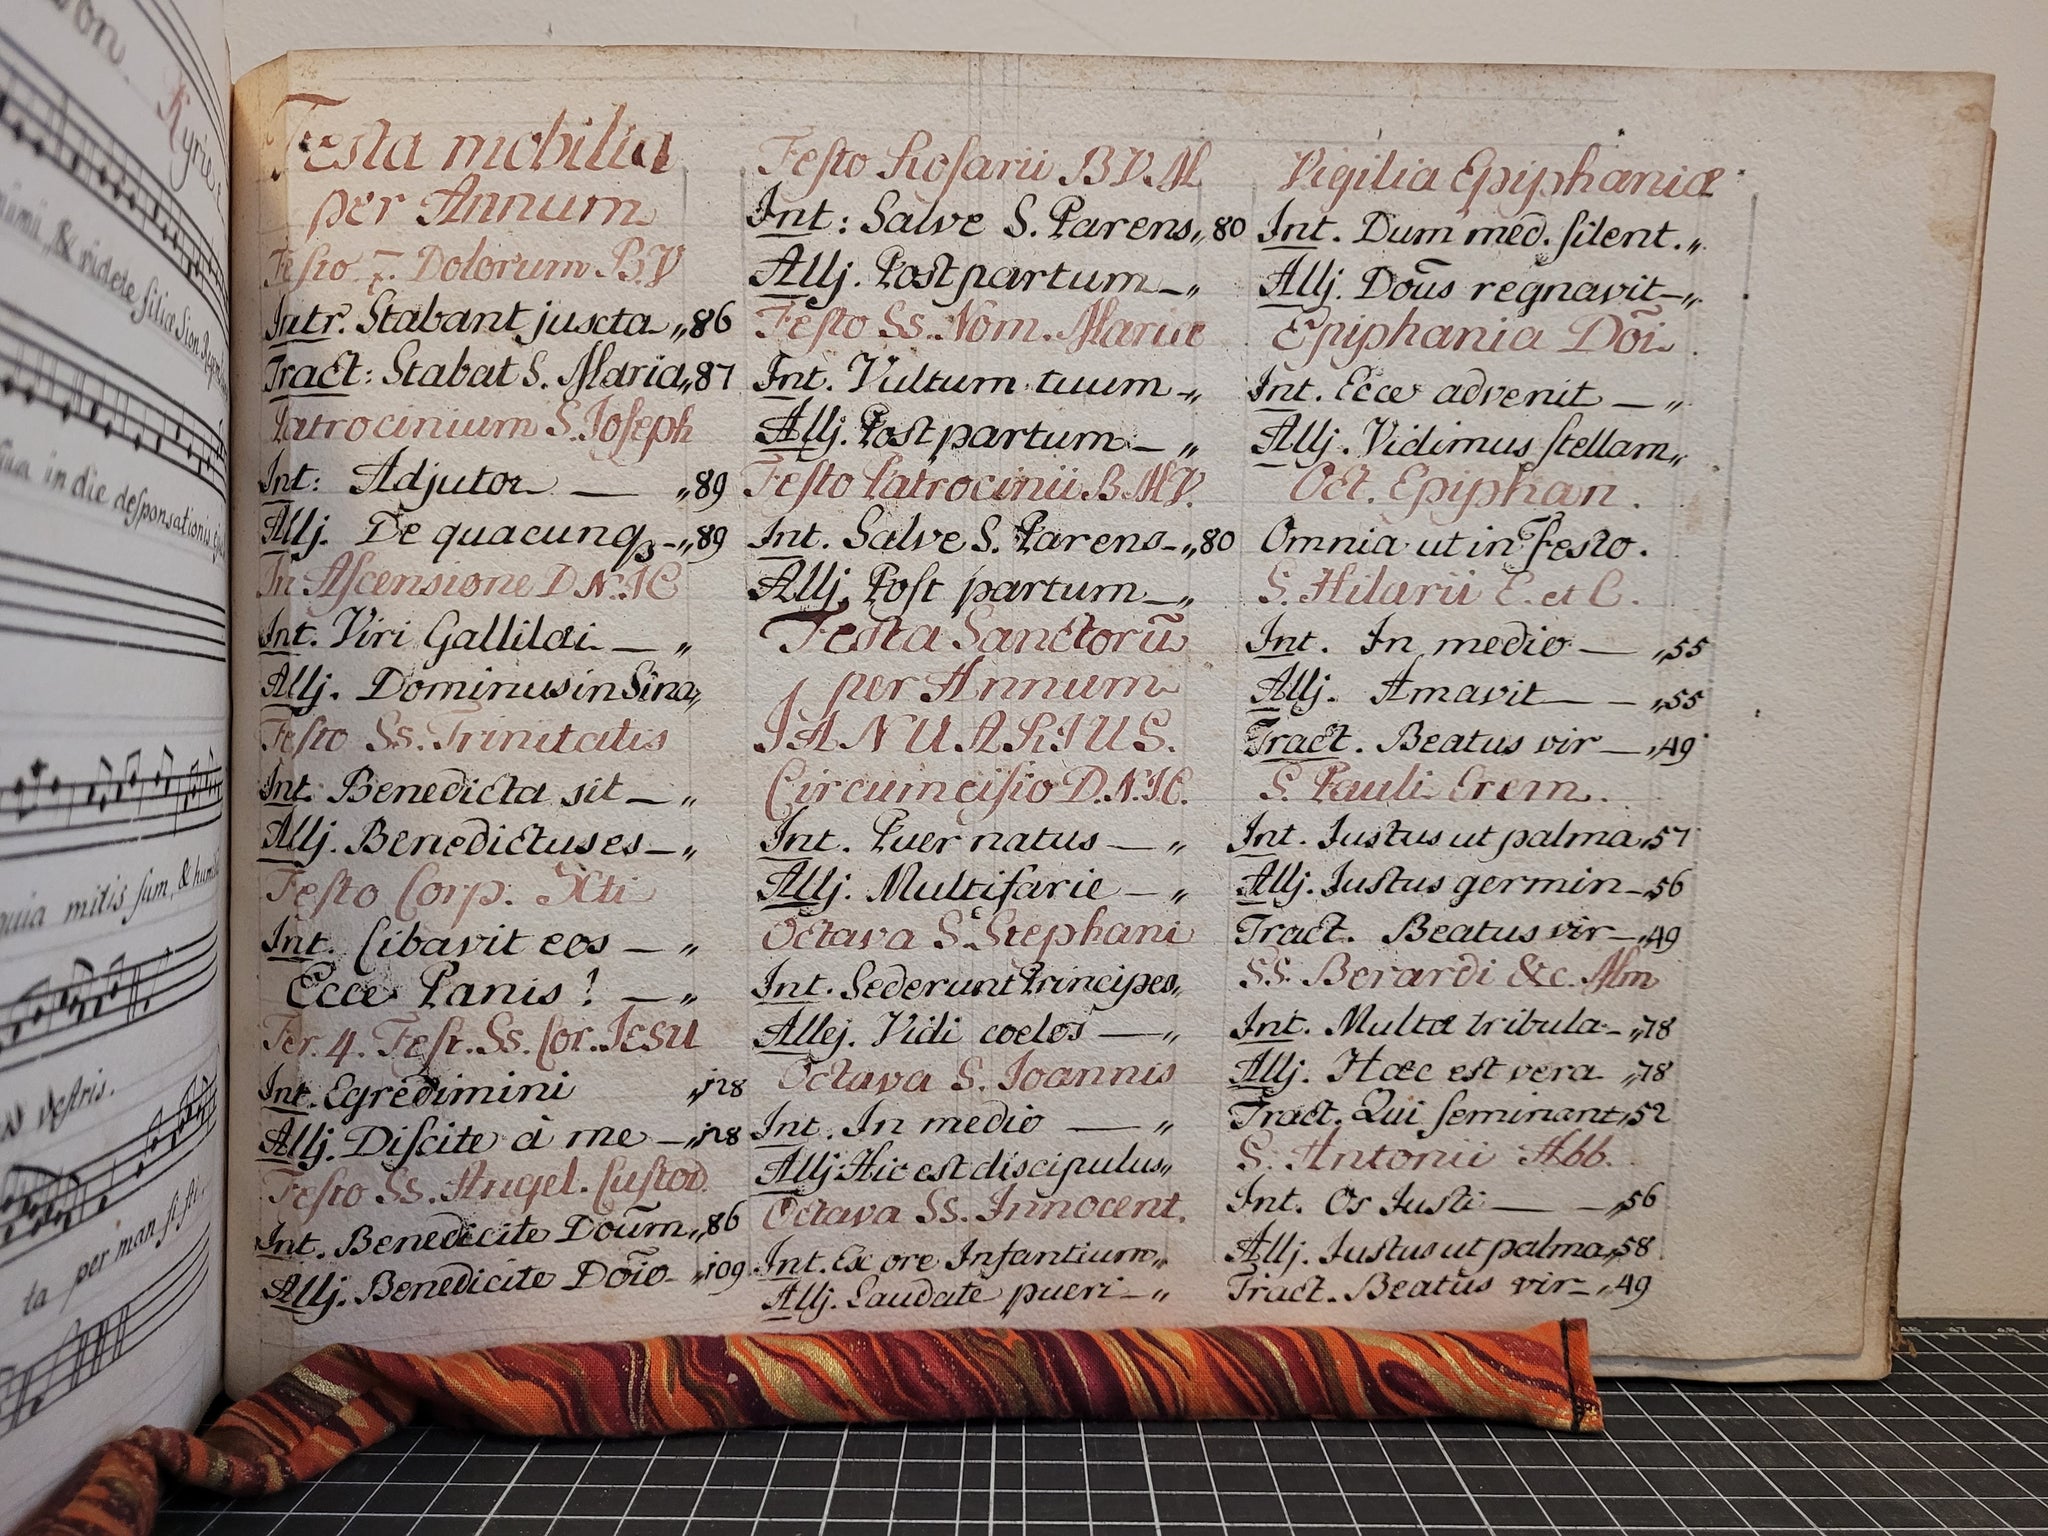 on.
Kyrie e
nimii, & videte filiæ Sion Rege
in die desponsationis
quia mitis sum, & humil
vestris.
ta per man si sti.
Festa mobilia
per Annum
Festo 7. Dolorum B.V
Intr. Stabant juxta „86
Tract: Stabat S. Maria„87
Patrocinium S. Joseph
Int: Adjutor — „89
Allj. De quacunq3 -„89
In Ascensione D.N.I.C
Int. Viri Gallilæi — „
Allj. Dominus in Sina„
Festo Ss. Trinitatis
Int. Benedicta sit — „
Allj. Benedictus es — „
Festo Corp. Xti
Int. Cibavit eos — „
Ecce Panis! — „
Fer. 4. Fest. Ss. Cor. Iesu
Int. Egredimini „128
Allj. Discite à me — „128
Festo Ss. Angel. Custod.
Int. Benedicite Doūm„86
Allj. Benedicite Doīo- „109
Festo Rosarii B V. M
Int: Salve S. Parens„80
Allj. Post partum — „
Festo Ss. Nom. Mariæ
Int. Vultum tuum -„
Allj. Post partum — „
Festo Patrocinii B M V.
Int. Salve S. Parens-„80
Allj. Post partum — „
Festa Sanctorū
per Annum
JANUARIUS.
Circumcisio D.N.I.C.
Int. Puer natus — „
Allj. Multifarie — „
Octava S. Stephani
Int. Sederunt Principes„
Allej. Vidi coelos — „
Octava S. Joannis
Int. In medio — „
Allj Hic est discipulus„
Octava Ss. Innocent.
Int. Ex ore Infantium„
Allj. Laudate pueri — „
Vigilia Epiphaniæ
Int. Dum med. silent. „
Allj. Doūs regnavit-„
Epiphania Doīi
Int. Ecce advenit — „
Allj. Vidimus stellam„
Oct. Epiphan.
Omnia ut in Festo.
S. Hilarii E. et C.
Int. In medio — „55
Allj. Amavit — — „55
Tract. Beatus vir — „49
S. Pauli Erem.
Int. Iustus ut palma„57
Allj. Iustus germin-„56
Tract. Beatus vir-„49
SS. Berardi &c. Mm
Int. Multæ tribula- „78
Allj. Hæc est vera „78
Tract. Qui seminant„52
S. Antonii Abb.
Int. Os Justi — -„56
Allj. Iustus ut palma„58
Tract. Beatus vir- „49